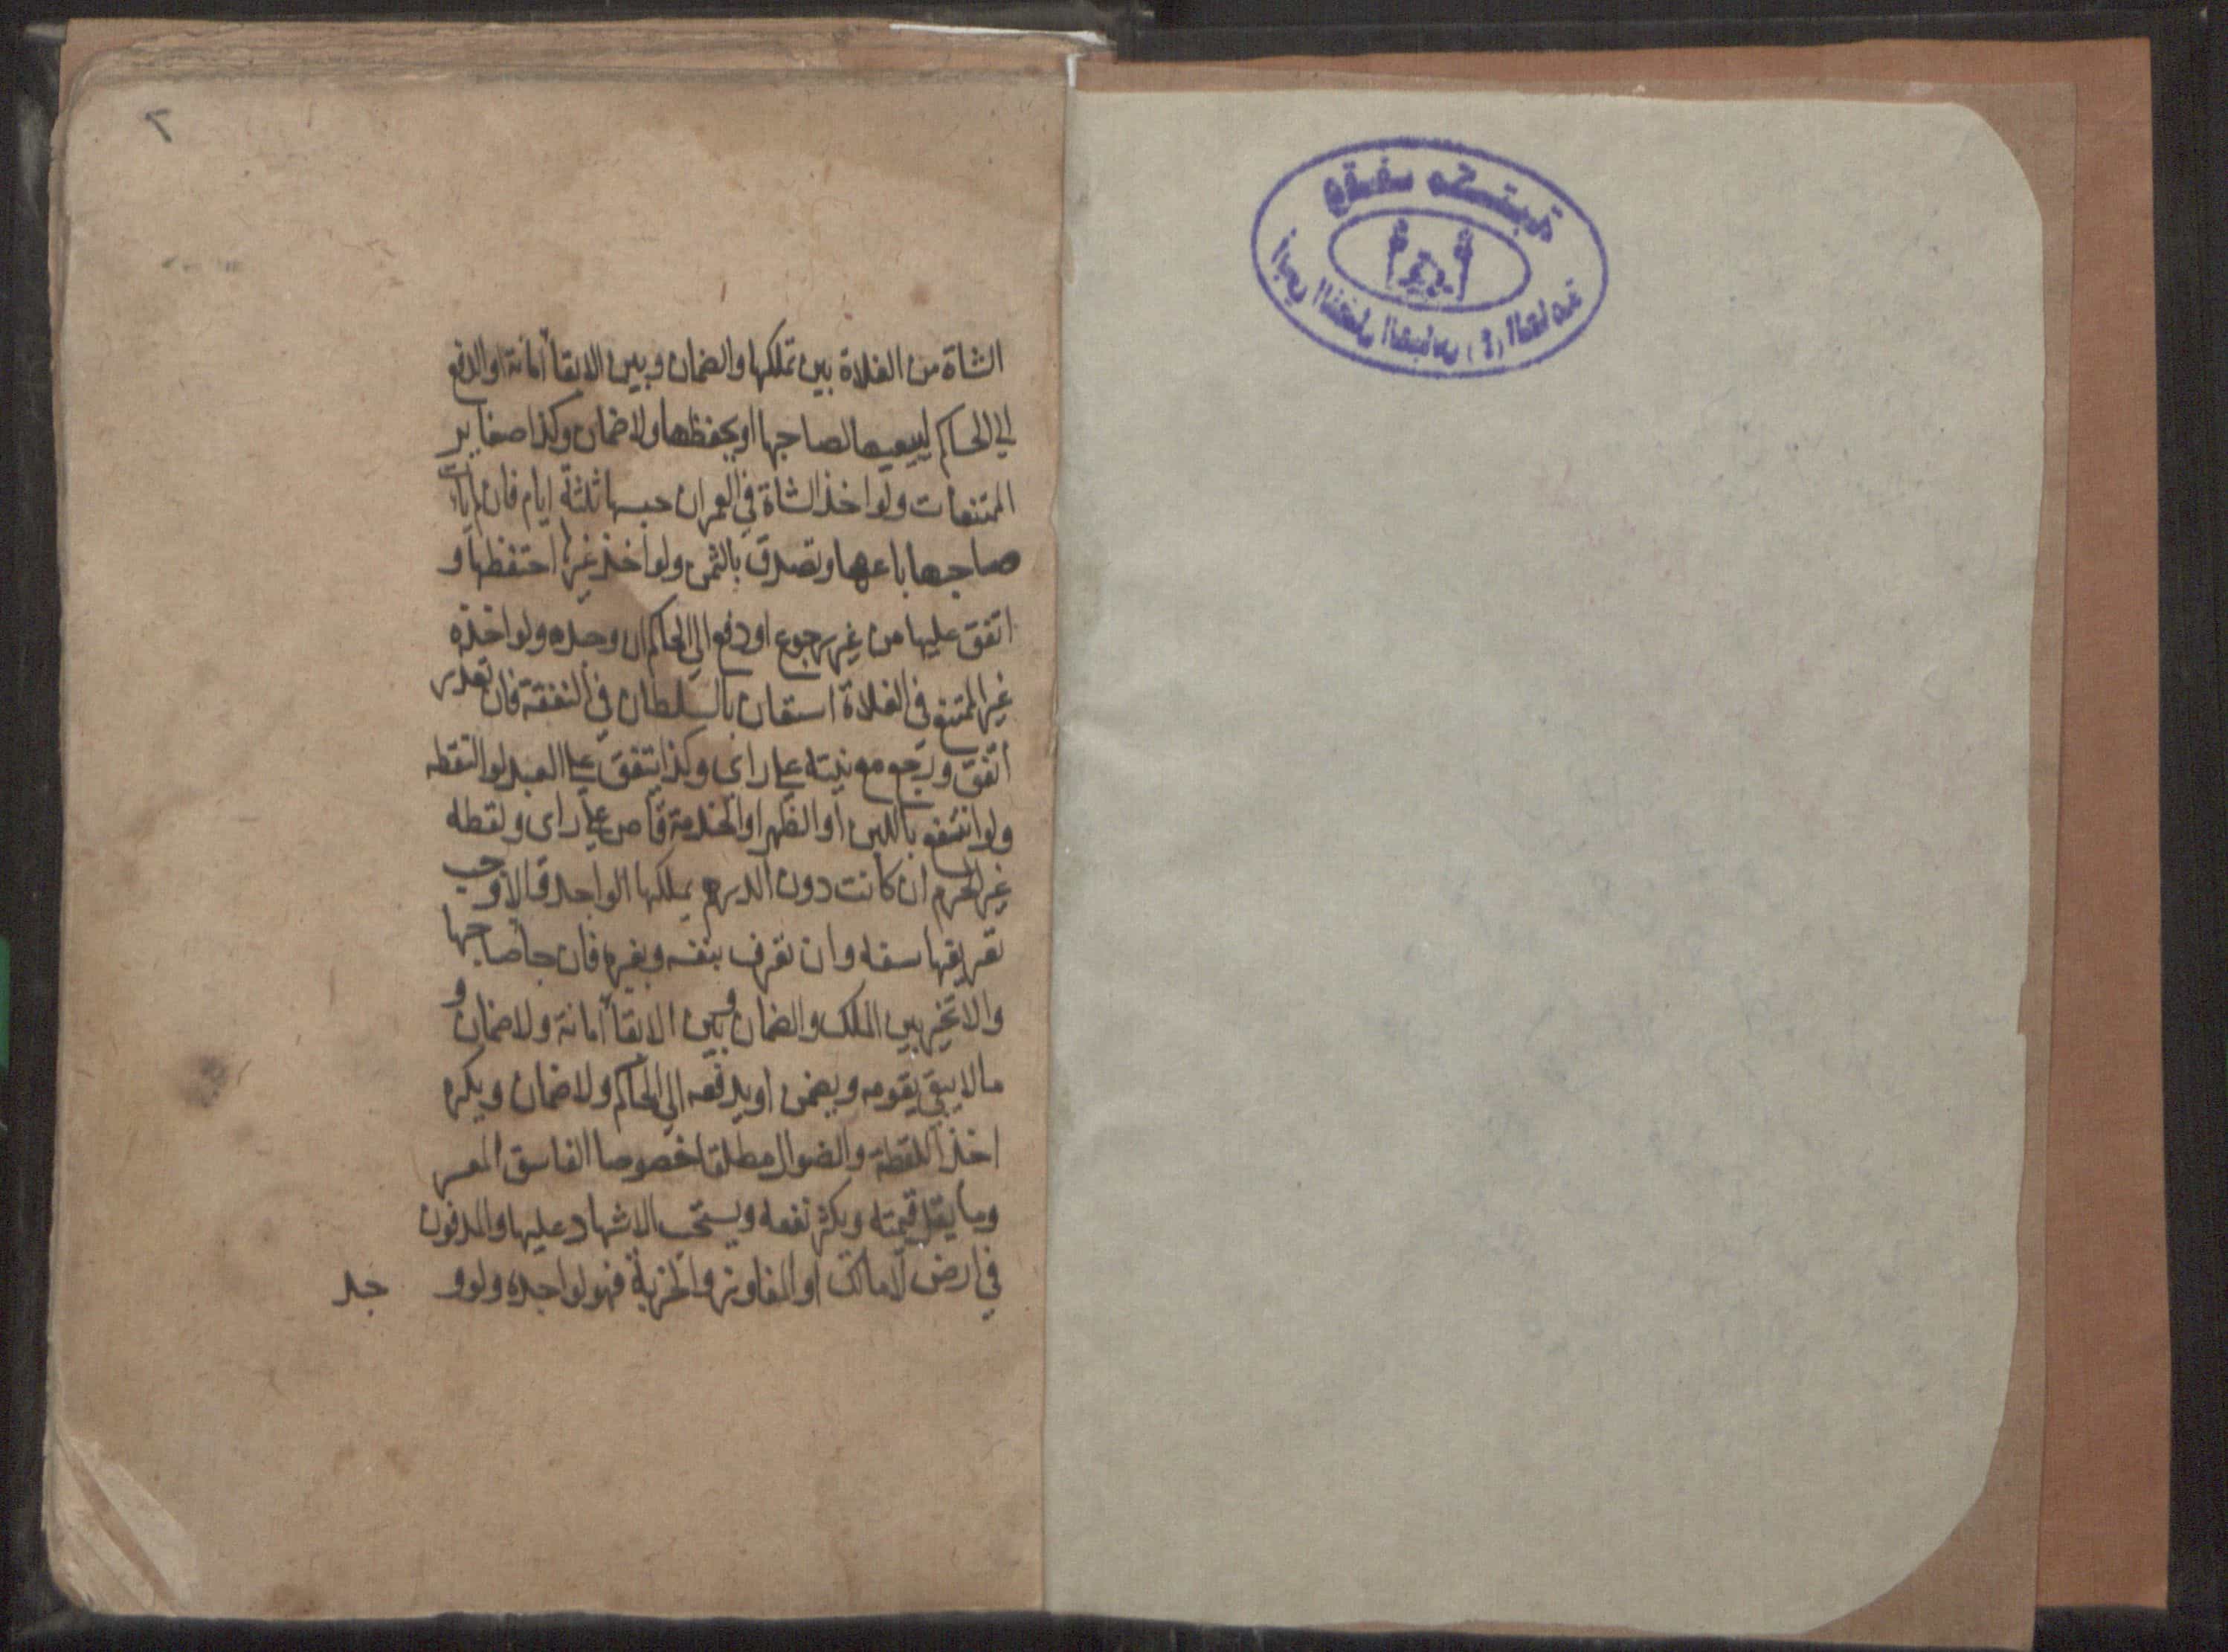 ٢
الشاة من الفلاة بين تملكها والضمان وبين الابقا أمانة او الدفع
الى الحاكم ليبيعها لصاحبها او يحفظها ولا ضمان وكذا صغاير
الممتنعات ولو اخذ الشاة في العمران حبسها ثلثة ايام فان لم يات
صاحبها باعها وتصدق بالثمن ولو اخذ غيرها احتفظها و
انفق عليها من غير رجوع او دفع الى الحاكم ان وجده ولو اخذه
غير الممتنع في الفلاة استعان بالسلطان في النفقة فان تعذر
انفق ورجع مع نيته على راى وكذا ينفق على العبد لو التقطه
ولو انتفع باللبن او الظهر او الخدمة قاص على راى ولقطه
غير الحرم ان كانت دون الدرهم يملكها الواجد والا وجب
تعريفها سنه وان تعرف بنفسه وبغيره فان جا صاحبها
والا تخير بين الملك والضمان وبين الابقا أمانة ولا ضمان و
مالا يبقى يقومه ويضمن او يدفعه الى الحاكم ولا ضمان ويكره
اخذ اللقطة والضوال مطلقا خصوصا الفاسق المعسر
وما يقل قيمته ويكثر نفعه ويستحب الاشهاد عليها والمدفون
في ارض لا مالك او المفاوز والخربة فهو لواجده ولو و
جد